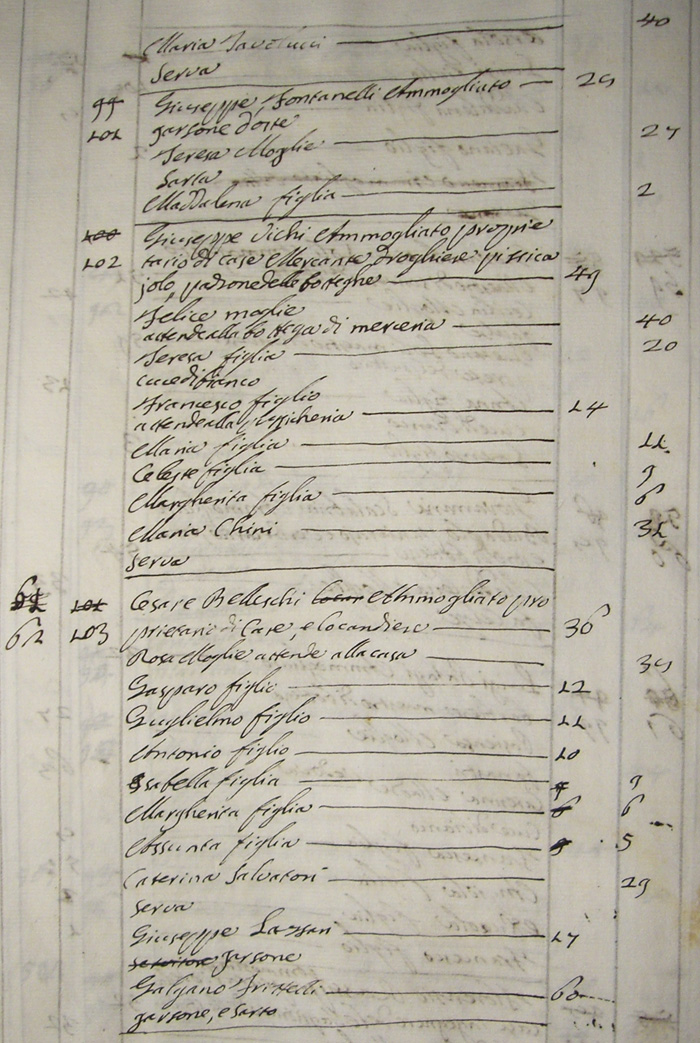 40
Maria Iacolucci
Serva
99 Giuseppe Fontanelli Ammogliato 29
101 garzone d'oste
Teresa Moglie 27
Sarta
Maddalena figlia 2
100 Giuseppe Vichi Ammogliato proprie
102 tario di case Mercante Droghiere pizzica
jolo, padrone delle botteghe 49
Felice moglie
attende alla bottega di merceria 40
Teresa figlia 20
cuce di bianco
Francesco figlio
attende alla pizzicheria 14
Maria figlia 11
Celeste figlia 9
Margherita figlia 6
Maria Chini 31
serva
61 101 Cesare Belleschi locan Ammogliato pro
62 103 prietario di Case, e locandiere 36
Rosa Moglie attende alla casa 39
Gasparo figlio 12
Guglielmo figlio 11
Antonio figlio 10
Isabella figlia 9 9
Margherita figlia 6 6
Assunta figlia 5 5
Caterina Salvatori 29
serva
Giuseppe Lazzari 17
servitore garzone
Galgano Fratelli 60
garzone, e sarto